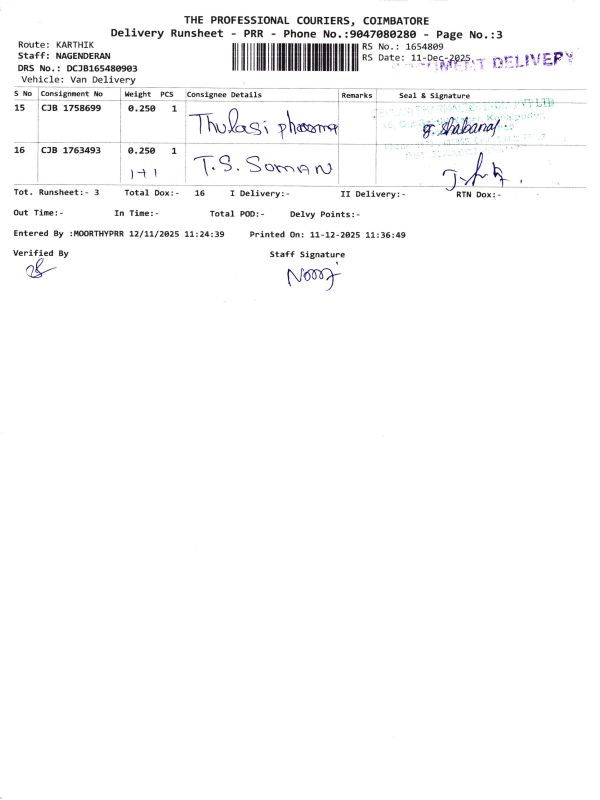 THE PROFESSIONAL COURIERS, COIMBATORE
Delivery Runsheet - PRR - Phone No.:9047080280 - Page No.:3
Route: KARTHIK RS No.: 1654809
Staff: NAGENDERAN RS Date: 11-Dec-2025
DELIVERY
DRS No.: DCJB165480903
Vehicle: Van Delivery
S No Consignment No Weight PCS Consignee Details Remarks Seal & Signature
15 CJB 1758699 0.250 1 Thulasi pharma g. Shabana
16 CJB 1763493 0.250 1 T.S. SOMAN
1+1
Tot. Runsheet:- 3 Total Dox:- 16 I Delivery:- II Delivery:- RTN Dox:-
Out Time:- In Time:- Total POD:- Delvy Points:-
Entered By :MOORTHYPRR 12/11/2025 11:24:39 Printed On: 11-12-2025 11:36:49
Verified By Staff Signature